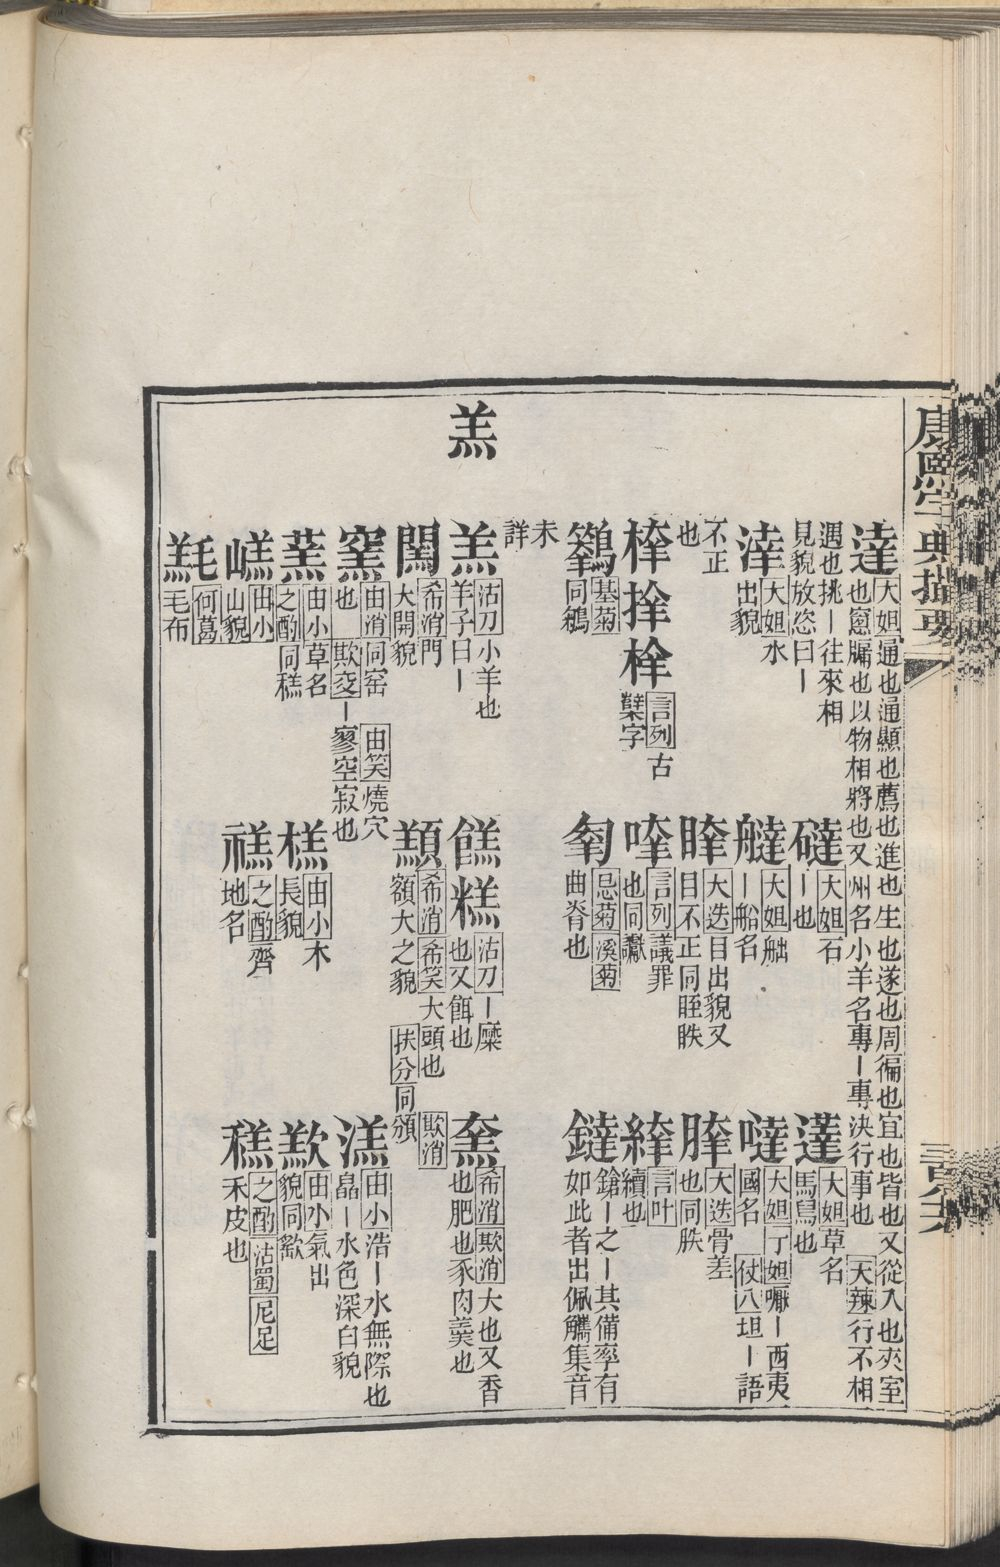 康熙字典撮要
達 大妲 通也通顯也薦也進也生也遂也周徧也宜也皆也又從入也夾室也窻牖也以物相將也又州名小羊名專丨專決行事也 天辣 行不相遇也挑丨往來相見貌放恣曰丨
薘 大妲 草名馬舄也
澾 大妲 水出貌
大妲 石丨也
大妲 船名
噠 大妲 丁妲 嚈丨西夷國名 仗八 坦丨語不正也
大迭 目出貌又目不正同眰眣
大迭 骨差也同胅
言列 古櫱字
言列 議罪也同讞
言叶 續也
基菊 同鵴
忌菊 溪菊 曲脊也
鐽 鎗丨之丨其備率有如此者出佩觿集音未詳
羔
羔 沽刀 小羊也羊子曰丨
餻糕 沽刀 丨糜也又餌也
希消 欺消 大也又香也肥也豕肉羹也
希消 門大開貌
希消 希笑 大頭也額大之貌 扶分 同頒 欺消
窯 由消 同窑 由笑 燒穴也 欺交 丨寥空寂也
溔 由小 浩丨水無際也皛丨水色深白貌
由小 草名 之酌 同穛
由小 木長貌
由小 氣出貌同歊
由小 山貌
禚 之酌 齊地名
何葛 毛布
之酌 沽蜀 尼足 禾皮也